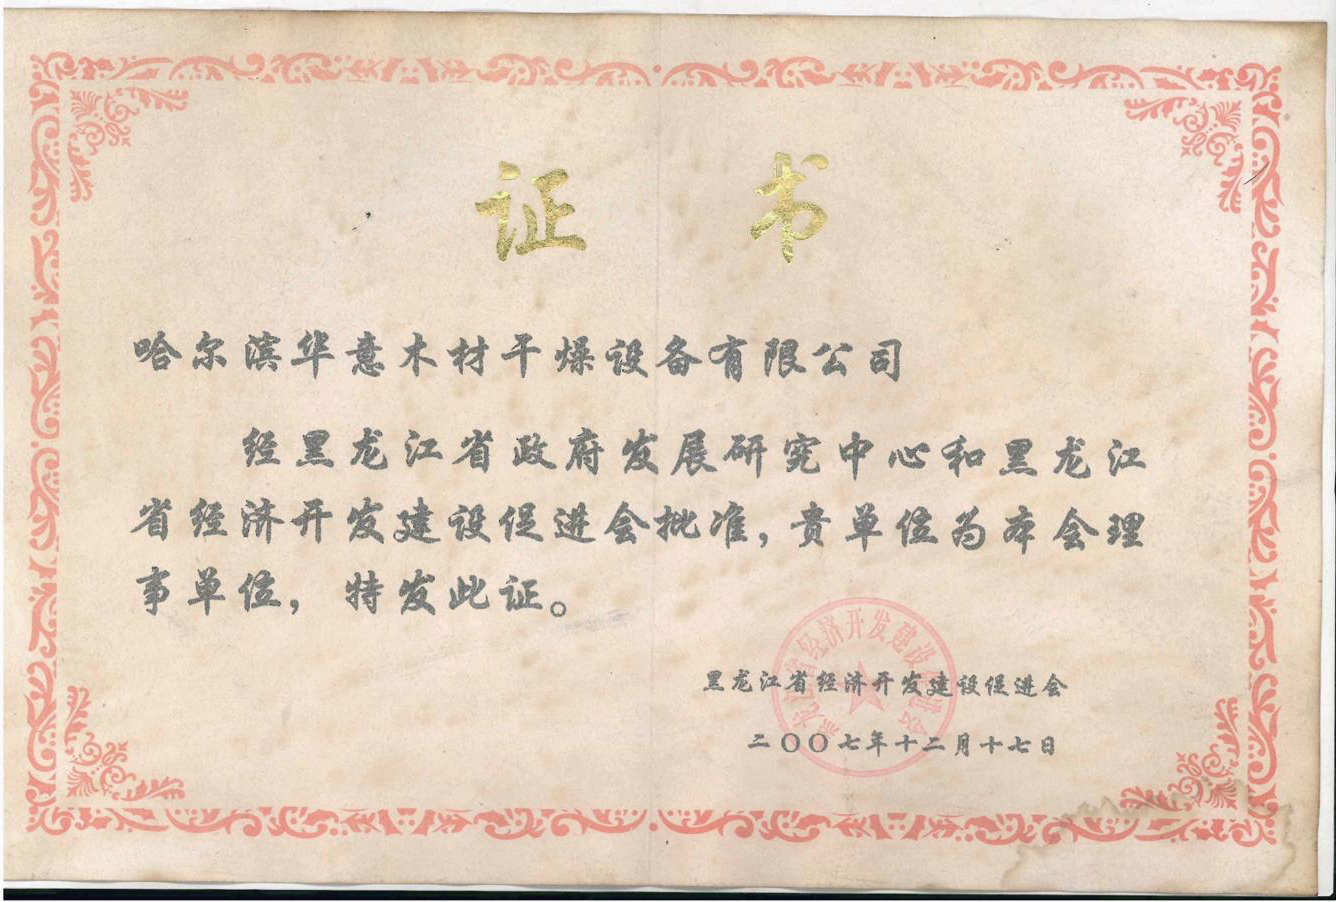 证 书
哈尔滨华意木材干燥设备有限公司
经黑龙江省政府发展研究中心和黑龙江
省经济开发建设促进会批准,贵单位为本会理
事单位,特发此证。
黑龙江省经济开发建设促进会
黑龙江省经济开发建设促进会
二〇〇七年十二月十七日